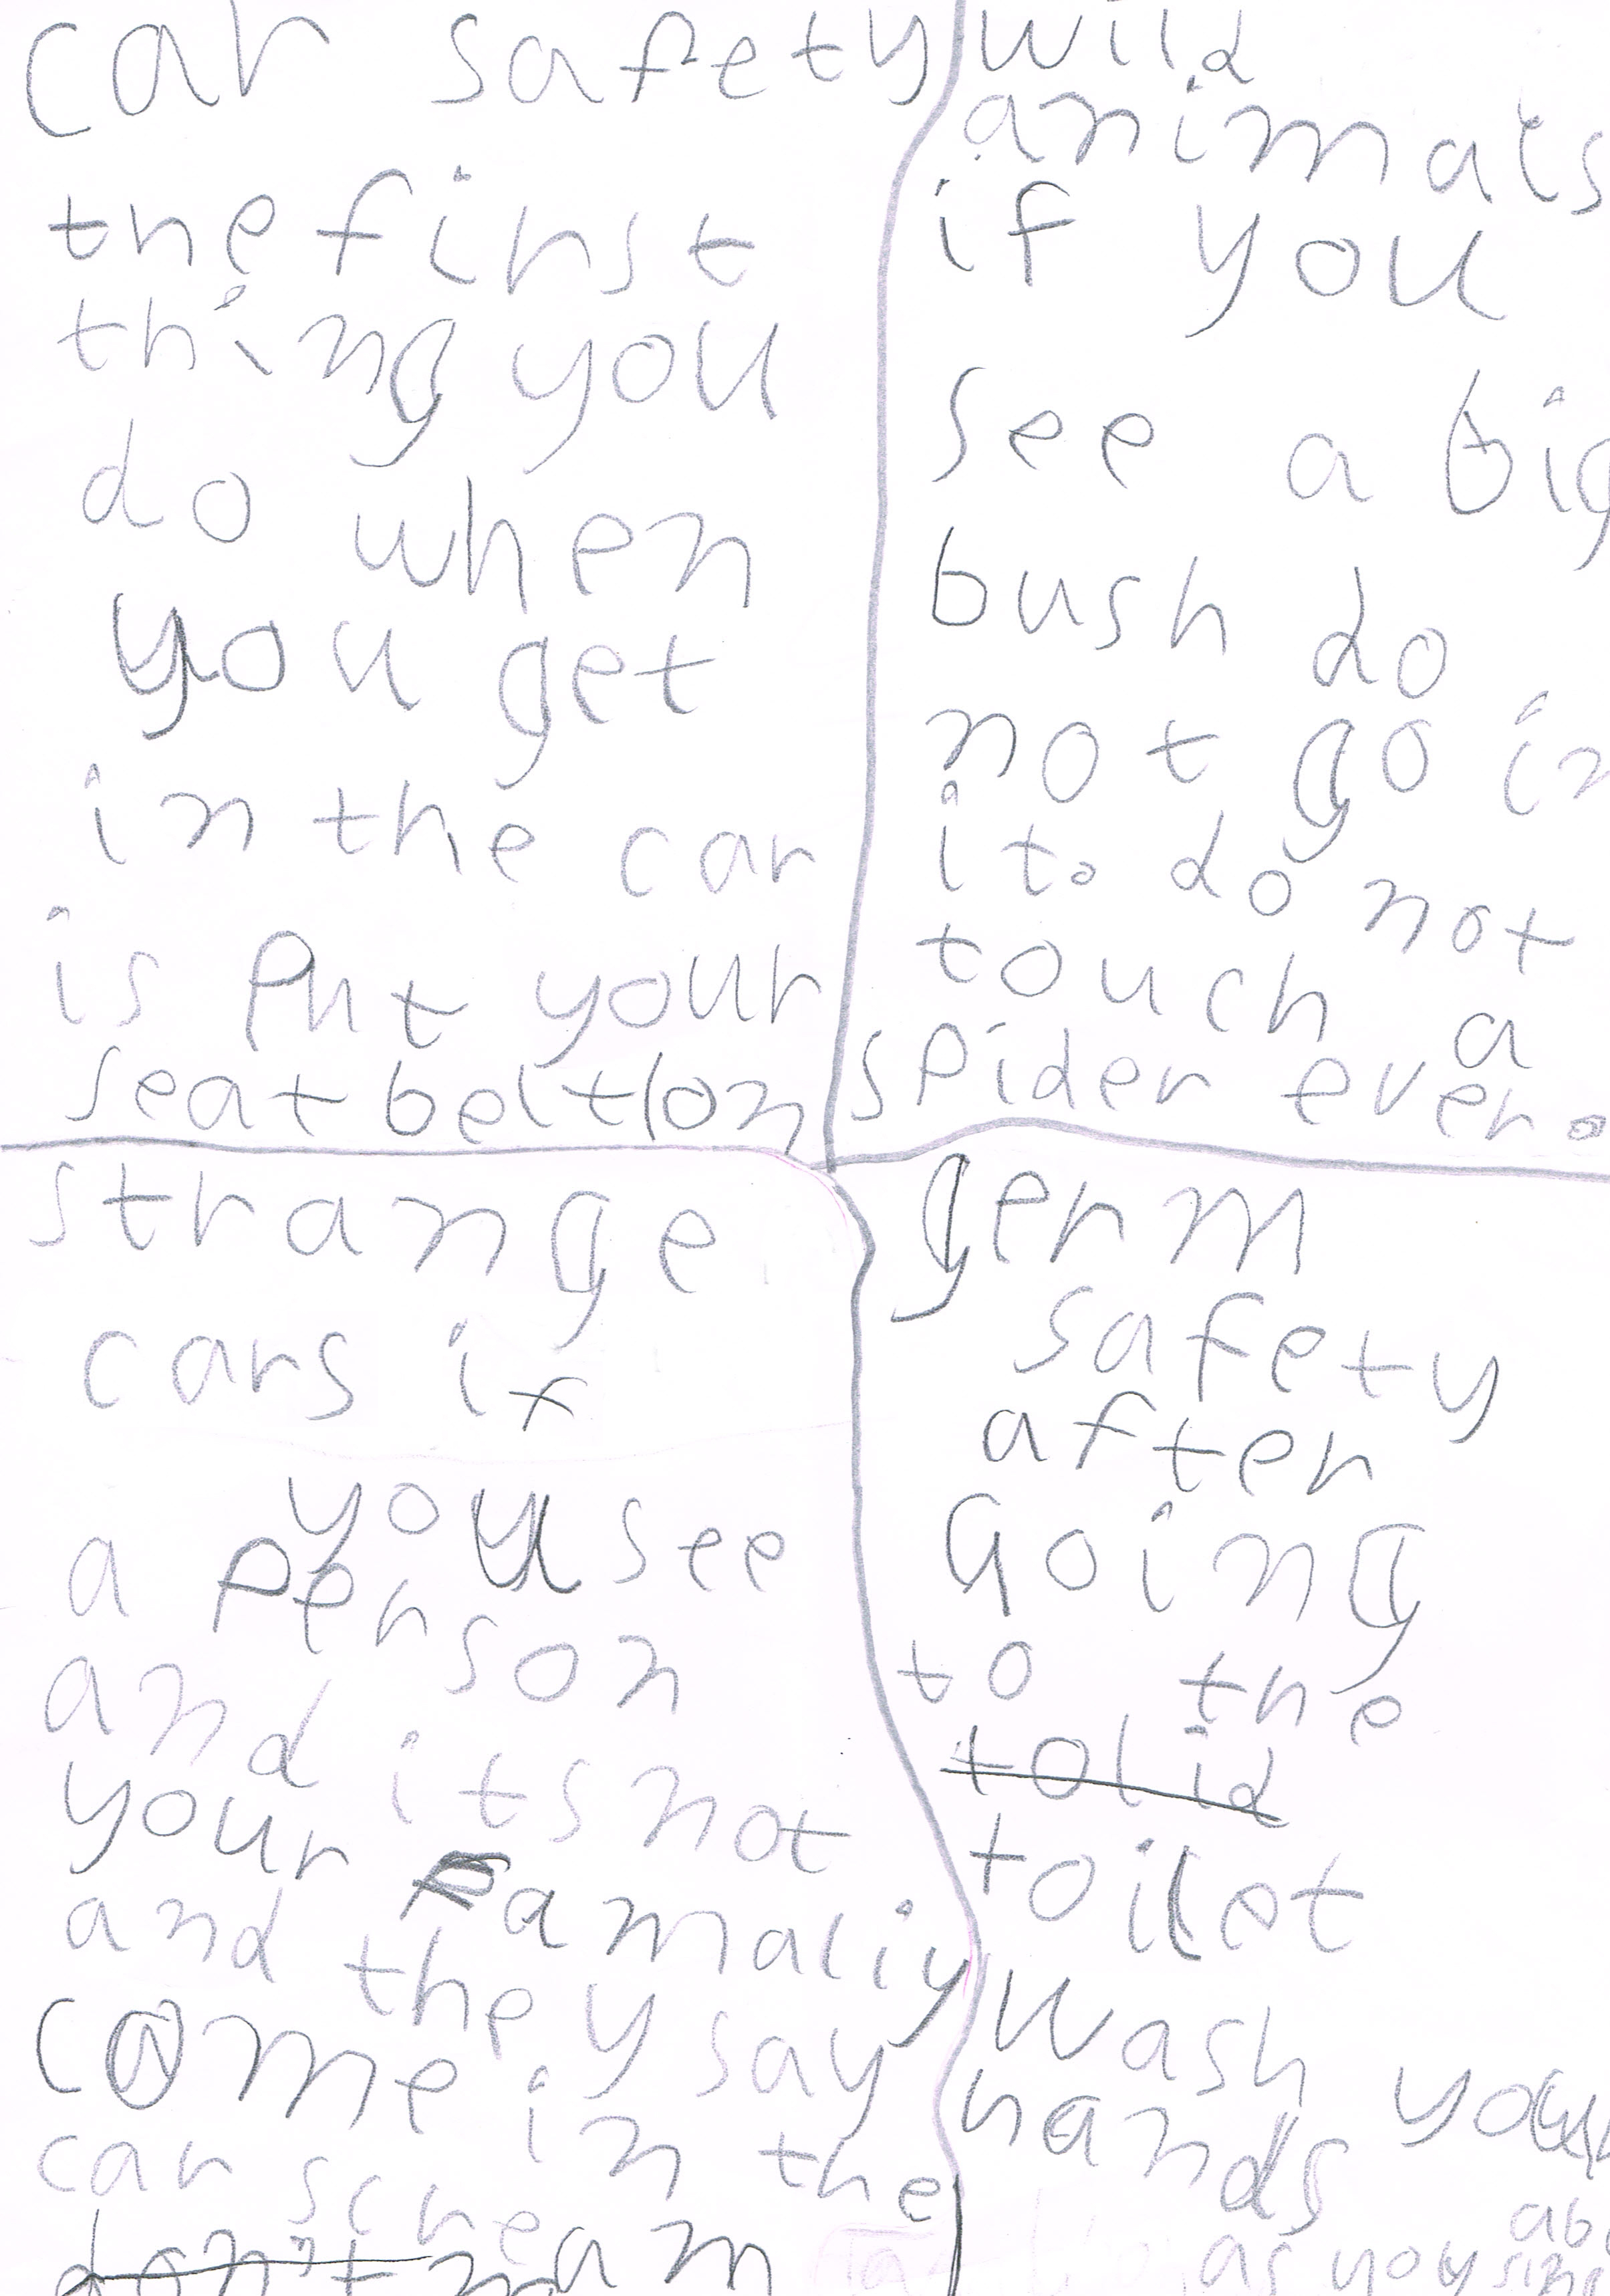 car safety
the first
thing you
do when
you get
in the car
is put your
seat belt on
wild
animals
if you
see a big
bush do
not go in
it. do not
touch a
spider ever.
strange
cars if
you see
a person
and its not
your famaliy
and they say
come in the
car scream
don't
germ
safety
after
Going
to the
tolid
toilet
wash your
hands
as you sing